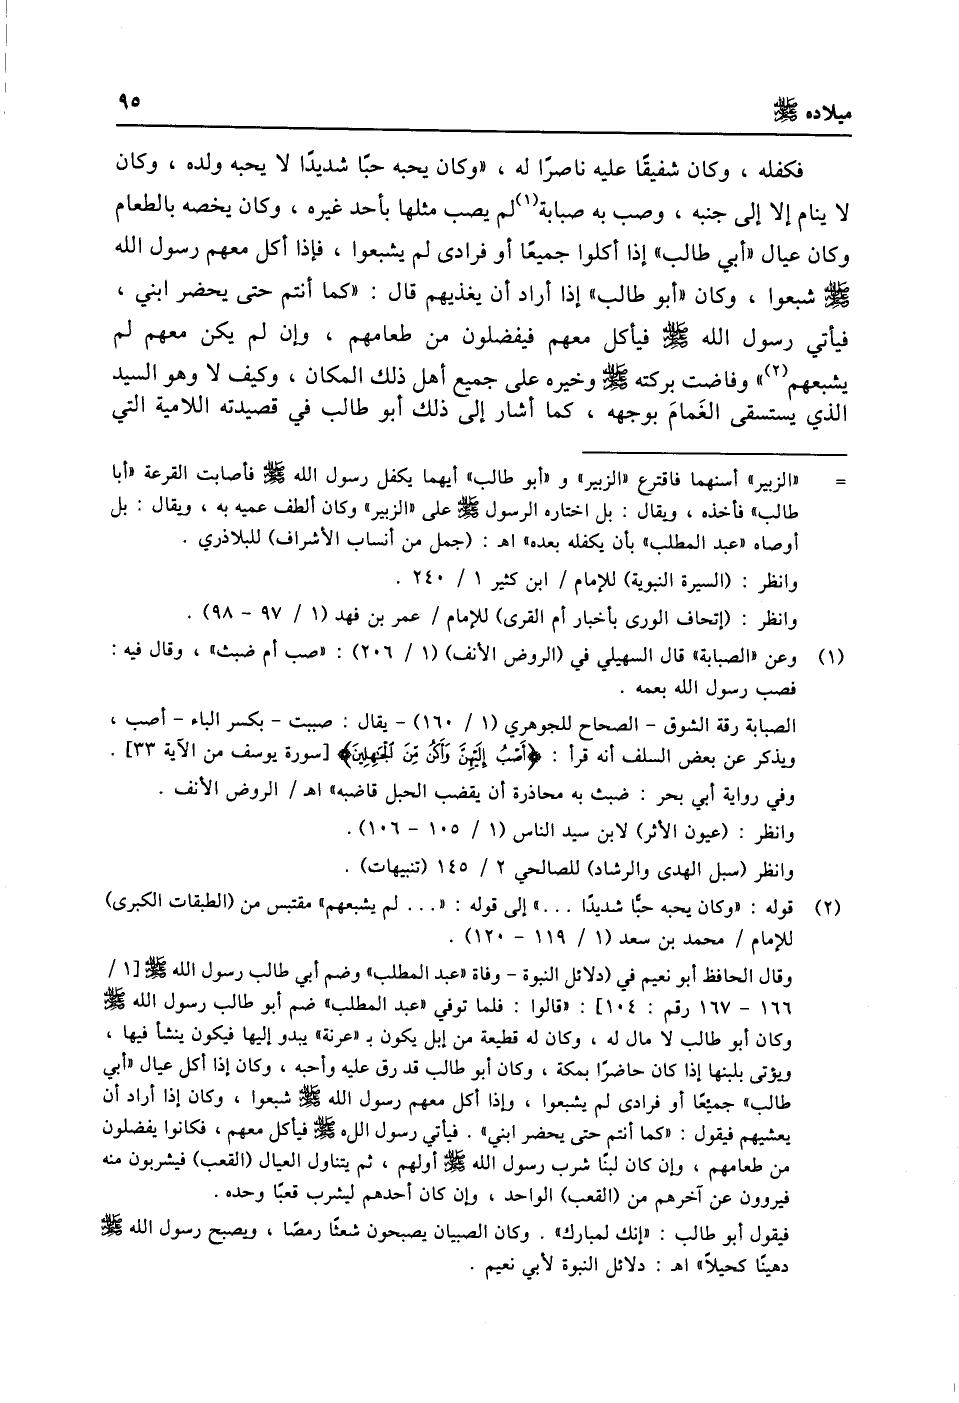 ميلاده ﷺ
٩٥
فكفله ، وكان شفيقًا عليه ناصرًا له ، «وكان يحبه حبًا شديدًا لا يحبه ولده ، وكان
لا ينام إلا إلى جنبه ، وصب به صبابة(١)لم يصب مثلها بأحد غيره ، وكان يخصه بالطعام
وكان عيال «أبي طالب» إذا أكلوا جميعًا أو فرادى لم يشبعوا ، فإذا أكل معهم رسول الله
ﷺ شبعوا ، وكان «أبو طالب» إذا أراد أن يغذيهم قال : «كما أنتم حتى يحضر ابني ،
فيأتي رسول الله ﷺ فيأكل معهم فيفضلون من طعامهم ، وإن لم يكن معهم لم
يشبعهم(٢)» وفاضت بركته ﷺ وخيره على جميع أهل ذلك المكان ، وكيف لا وهو السيد
الذي يستسقى الغَمامَ بوجهه ، كما أشار إلى ذلك أبو طالب في قصيدته اللامية التي
= «الزبير» أسنهما فاقترع «الزبير» و «أبو طالب» أيهما يكفل رسول الله ﷺ فأصابت القرعة «أبا
طالب» فأخذه ، ويقال : بل اختاره الرسول ﷺ على «الزبير» وكان ألطف عميه به ، ويقال : بل
أوصاه «عبد المطلب» بأن يكفله بعده» اهـ : (جمل من أنساب الأشراف) للبلاذري .
وانظر : (السيرة النبوية) للإمام / ابن كثير ١ / ٢٤٠ .
وانظر : (إتحاف الورى بأخبار أم القرى) للإمام / عمر بن فهد (١ / ٩٧ - ٩٨) .
(١) وعن «الصبابة» قال السهيلي في (الروض الأنف) (١ / ٢٠٦) : «صب أم ضبث» ، وقال فيه :
فصب رسول الله بعمه .
الصبابة رقة الشوق - الصحاح للجوهري (١ / ١٦٠) - يقال : صببت - بكسر الباء - أصب ،
ويذكر عن بعض السلف أنه قرأ : ﴿أَصْبُ إِلَيْهِنَّ وَأَكُنْ مِّنَ الْجَٰهِلِينَ﴾ [سورة يوسف من الآية ٣٣] .
وفي رواية أبي بحر : ضبث به محاذرة أن يقضب الحبل قاضبه» اهـ / الروض الأنف .
وانظر : (عيون الأثر) لابن سيد الناس (١ / ١٠٥ - ١٠٦) .
وانظر (سبل الهدى والرشاد) للصالحي ٢ / ١٤٥ (تنبيهات) .
(٢) قوله : «وكان يحبه حبًّا شديدًا ...» إلى قوله : «... لم يشبعهم» مقتبس من (الطبقات الكبرى)
للإمام / محمد بن سعد (١ / ١١٩ - ١٢٠) .
وقال الحافظ أبو نعيم في (دلائل النبوة - وفاة «عبد المطلب» وضم أبي طالب رسول الله ﷺ [١ /
١٦٦ - ١٦٧ رقم : ١٠٤] : «قالوا : فلما توفي «عبد المطلب» ضم أبو طالب رسول الله ﷺ
وكان أبو طالب لا مال له ، وكان له قطيعة من إبل يكون بـ «عرنة» يبدو إليها فيكون ينشأ فيها ،
ويؤتى بلبنها إذا كان حاضرًا بمكة ، وكان أبو طالب قد رق عليه وأحبه ، وكان إذا أكل عيال «أبي
طالب» جميعًا أو فرادى لم يشبعوا ، وإذا أكل معهم رسول الله ﷺ شبعوا ، وكان إذا أراد أن
يعشيهم فيقول : «كما أنتم حتى يحضر ابني» . فيأتي رسول الله ﷺ فيأكل معهم ، فكانوا يفضلون
من طعامهم ، وإن كان لبنًا شرب رسول الله ﷺ أولهم ، ثم يتناول العيال (القعب) فيشربون منه
فيروون عن آخرهم من (القعب) الواحد ، وإن كان أحدهم ليشرب قعبًا وحده .
فيقول أبو طالب : «إنك لمبارك» . وكان الصبيان يصبحون شعثًا رمصًا ، ويصبح رسول الله ﷺ
دهينًا كحيلاً» اهـ : دلائل النبوة لأبي نعيم .